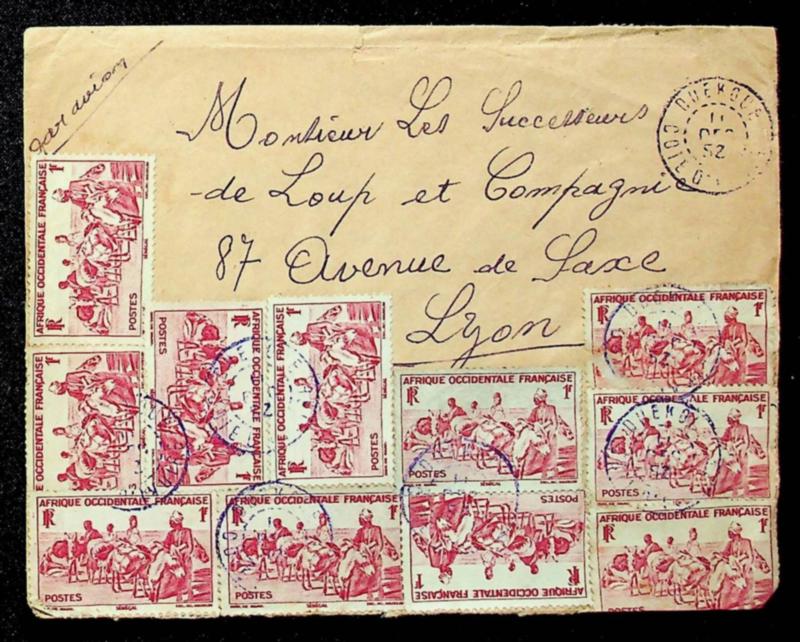 par avion
Monsieur Les Successeurs
de Loup et Compagnie
87 Avenue de Saxe
Lyon
DUEKOUE
11
DEC
52
COTE D
AFRIQUE OCCIDENTALE FRANÇAISE
RF
1F
POSTES
SÉNÉGAL
AFRIQUE OCCIDENTALE FRANÇAISE
RF
1F
POSTES
AFRIQUE OCCIDENTALE FRANÇAISE
RF
POSTES
AFRIQUE OCCIDENTALE FRANÇAISE
RF
1F
POSTES
SÉNÉGAL
AFRIQUE OCCIDENTALE FRANÇAISE
RF
1F
POSTES
AFRIQUE OCCIDENTALE FRANÇAISE
RF
1F
POSTES
AFRIQUE OCCIDENTALE FRANÇAISE
RF
1F
POSTES
AFRIQUE OCCIDENTALE FRANÇAISE
RF
1F
POSTES
SÉNÉGAL
AFRIQUE OCCIDENTALE FRANÇAISE
RF
1F
POSTES
SÉNÉGAL
RF
1F
POSTES
AFRIQUE OCCIDENTALE FRANÇAISE
RF
1F